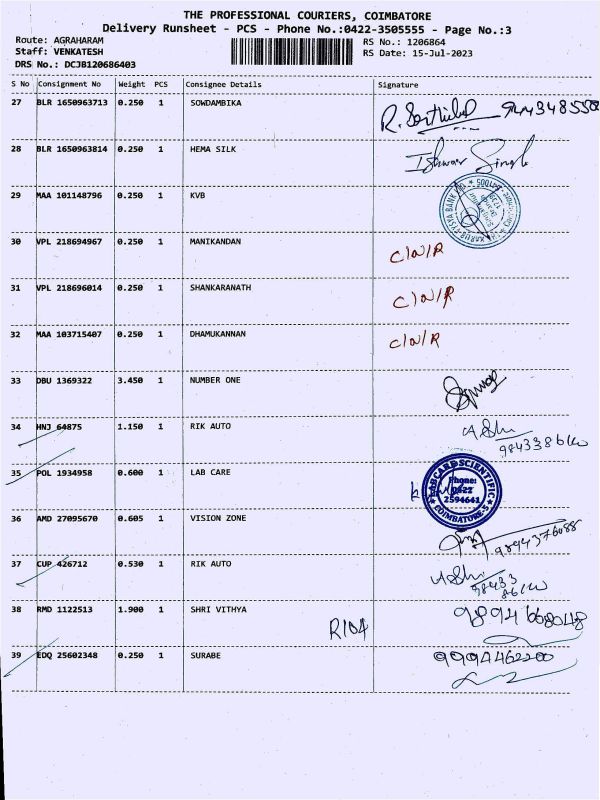 THE PROFESSIONAL COURIERS, COIMBATORE
Delivery Runsheet - PCS - Phone No.:0422-3505555 - Page No.:3
Route: AGRAHARAM
Staff: VENKATESH
DRS No.: DCJB120686403
RS No.: 1206864
RS Date: 15-Jul-2023
S No Consignment No Weight PCS Consignee Details Signature
27 BLR 1650963713 0.250 1 SOWDAMBIKA
28 BLR 1650963814 0.250 1 HEMA SILK Ishwar Singh
29 MAA 101148796 0.250 1 KVB
30 VPL 218694967 0.250 1 MANIKANDAN C/N/R
31 VPL 218696014 0.250 1 SHANKARANATH C/N/R
32 MAA 103715407 0.250 1 DHAMUKANNAN C/N/R
33 DBU 1369322 3.450 1 NUMBER ONE
34 HNJ 64875 1.150 1 RIK AUTO
35 POL 1934958 0.600 1 LAB CARE
LABCARE SCIENTIFIC
Phone:
0422
2594641
COIMBATORE-5
36 AMD 27095670 0.605 1 VISION ZONE 9894376088
37 CUP 426712 0.530 1 RIK AUTO
38 RMD 1122513 1.900 1 SHRI VITHYA R104 9894668048
39 EDQ 25602348 0.250 1 SURABE 9994462200